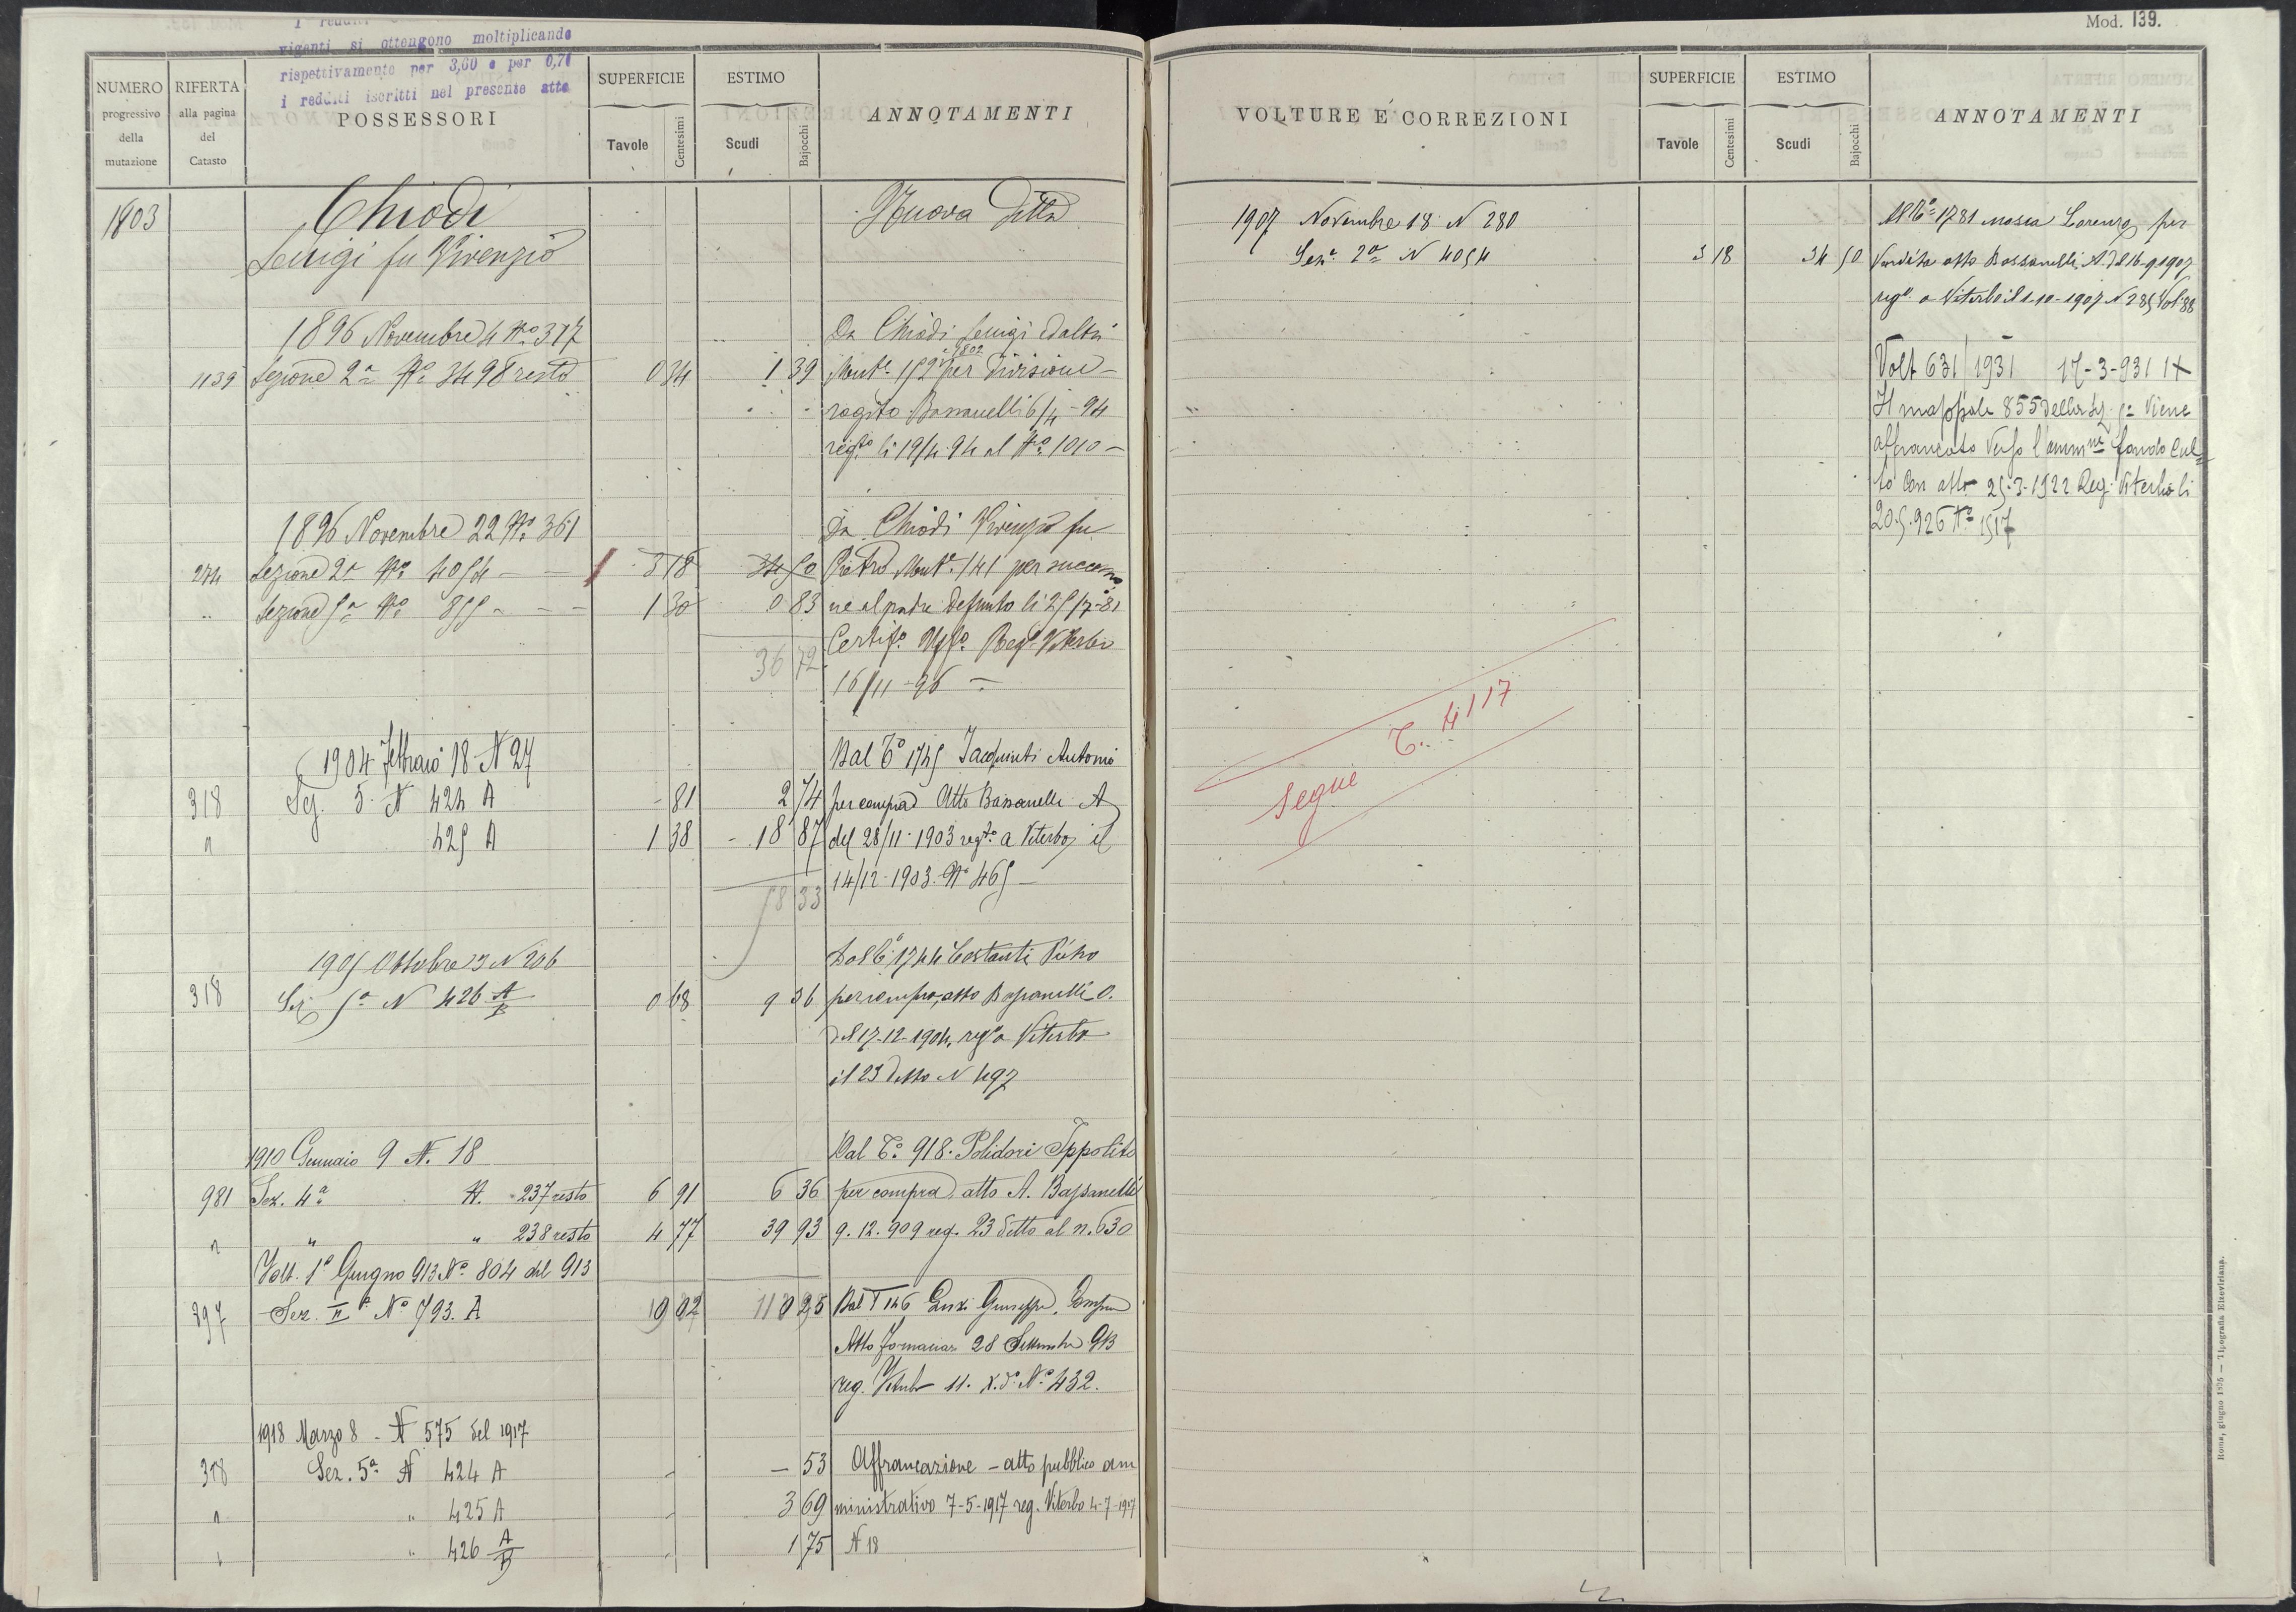 Mod. 139.
vigenti si ottengono moltiplicando
rispettivamente per 3,60 e per 0,71
i redditi iscritti nel presente atto
NUMERO progressivo della mutazione
RIFERTA alla pagina del Catasto
POSSESSORI
SUPERFICIE Tavole Centesimi
ESTIMO Scudi Bajocchi
ANNOTAMENTI
1803 Chiodi Nuova Ditta
Luigi fu Vivenzio
1896 Novembre 4 No 317 Da Chiodi Luigi ed altri
1802
1139 Sezione 2a No 3498 resto 0 34 1 39 Mut. per divisione
rogito Bassanelli 6/4-94
regto li 19/4 94 al No 1010
1896 Novembre 22 No 361 Da Chiodi Vivenzio fu
274 Sezione 2a No 4054 3 18 34 50 Pietro Mut. 141 per successio
" Sezione 5a No 855 1 30 0 83 ne al padre defunto li 25/7-81
Certifo Uffo Rego Viterbo
36 72
16/11-96
1904 Febbraio 18 N 27 Dal To 1745 Antonio
318 Sez. 5 N 424 A - 81 2 74 per compra Atto Bassanelli A
" 425 A 1 38 18 87 del 28/11 1903 regto a Viterbo il
14/12 1903 No 465
58 33
1905 Ottobre 3 N 206 Dal To 1744 Costanti Pietro
318 Sez 5a N 426 A/B 0 68 9 36 per compra, atto Bassanelli A.
del 17-12-1904, rego a Viterbo
il 23 detto N 497
1910 Gennaio 9 N. 18 Dal To 918. Polidori Ippolito
981 Sez. 4a N. 237 resto 6 91 6 36 per compra atto A. Bassanelli
" " " 238 resto 4 77 39 93 9.12.909 reg. 23 detto al n. 630
Volt. 1o Giugno 913 No 804 del 913
397 Sez. II a No 793. A 19 02 110 25 Dal T 146 Giuseppe, Compra
Atto 28 Settembre 913
reg. Viterbo 11. X. do No 432.
1918 Marzo 8 - N 575 del 1917
318 Sez. 5a N 424 A - - 53 Affrancazione - atto pubblico am
" " 425 A - 3 69 ministrativo 7-5-1917 reg. Viterbo 4-7-1917
" " 426 A/B - 1 75 N 18
VOLTURE E CORREZIONI
SUPERFICIE Tavole Centesimi
ESTIMO Scudi Bajocchi
ANNOTAMENTI
1907 Novembre 18 N 280 Al To 1781 Mosca Lorenzo per
Seze 2a N 4054 3 18 34 50 Vendita atto Bassanelli A. del 16-9-1907
rego a Viterbo il 1-10-1907 N 285 Vol. 88
Volt 631/1931 17-3-931 IX
Il mappale 855 della Sez. 5a viene
affrancato verso l'ammne fondo Cul=
to con atto 25-3-1922 Reg. Viterbo li
20.5.926 No 1517
segue T. 4117
Roma, giugno 1895 — Tipografia Elzeviriana.